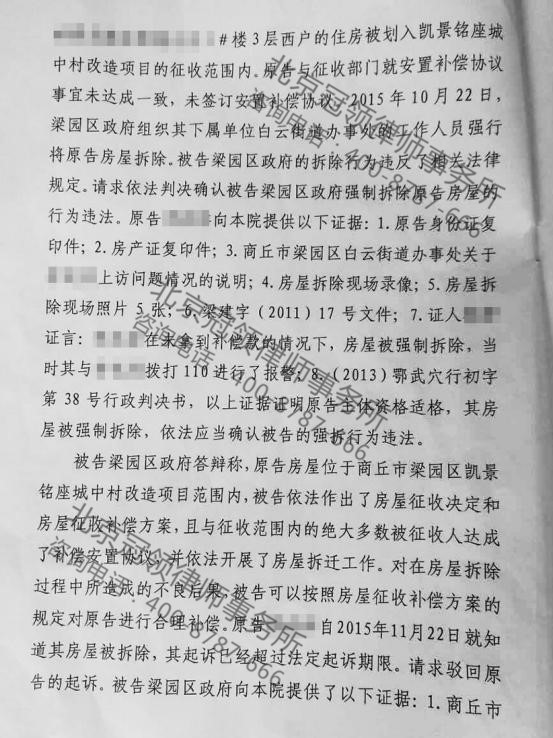 #楼3层西户的住房被划入凯景铭座城
中村改造项目的征收范围内。原告与征收部门就安置补偿协议
事宜未达成一致，未签订安置补偿协议。2015年10月22日，
梁园区政府组织其下属单位白云街道办事处的工作人员强行
将原告房屋拆除。被告梁园区政府的拆除行为违反了相关法律
规定。请求依法判决确认被告梁园区政府强制拆除原告房屋的
行为违法。原告 向本院提供以下证据：1.原告身份证复
印件；2.房产证复印件；3.商丘市梁园区白云街道办事处关于
上访问题情况的说明；4.房屋拆除现场录像；5.房屋拆
除现场照片5张；6.梁建字（2011）17号文件；7.证人
证言： 在未拿到补偿款的情况下，房屋被强制拆除，当
时其与 拨打110进行了报警；8.（2013）鄂武穴行初字
第38号行政判决书，以上证据证明原告主体资格适格，其房
屋被强制拆除，依法应当确认被告的强拆行为违法。
被告梁园区政府答辩称，原告房屋位于商丘市梁园区凯景
铭座城中村改造项目范围内，被告依法作出了房屋征收决定和
房屋征收补偿方案，且与征收范围内的绝大多数被征收人达成
了补偿安置协议，并依法开展了房屋拆迁工作。对在房屋拆除
过程中所造成的不良后果，被告可以按照房屋征收补偿方案的
规定对原告进行合理补偿。原告 自2015年11月22日就知
道其房屋被拆除，其起诉已经超过法定起诉期限。请求驳回原
告的起诉。被告梁园区政府向本院提供了以下证据：1.商丘市
北京冠领律师事务所
咨询电话：400-8787-666
北京冠领律师事务所
咨询电话：400-8787-666
北京冠领律师事务所
咨询电话：400-8787-666